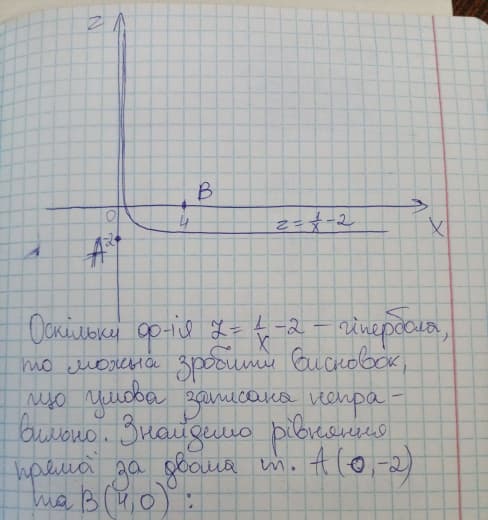 z
B
0
4
z = 1/x - 2
x
A -2
Оскільки ф-ія z = 1/x - 2 - гіпербола,
то можна зробити висновок,
що умова записана непра-
вильно. Знайдемо рівняння
прямої за двома т. A(0,-2)
та B(4,0):